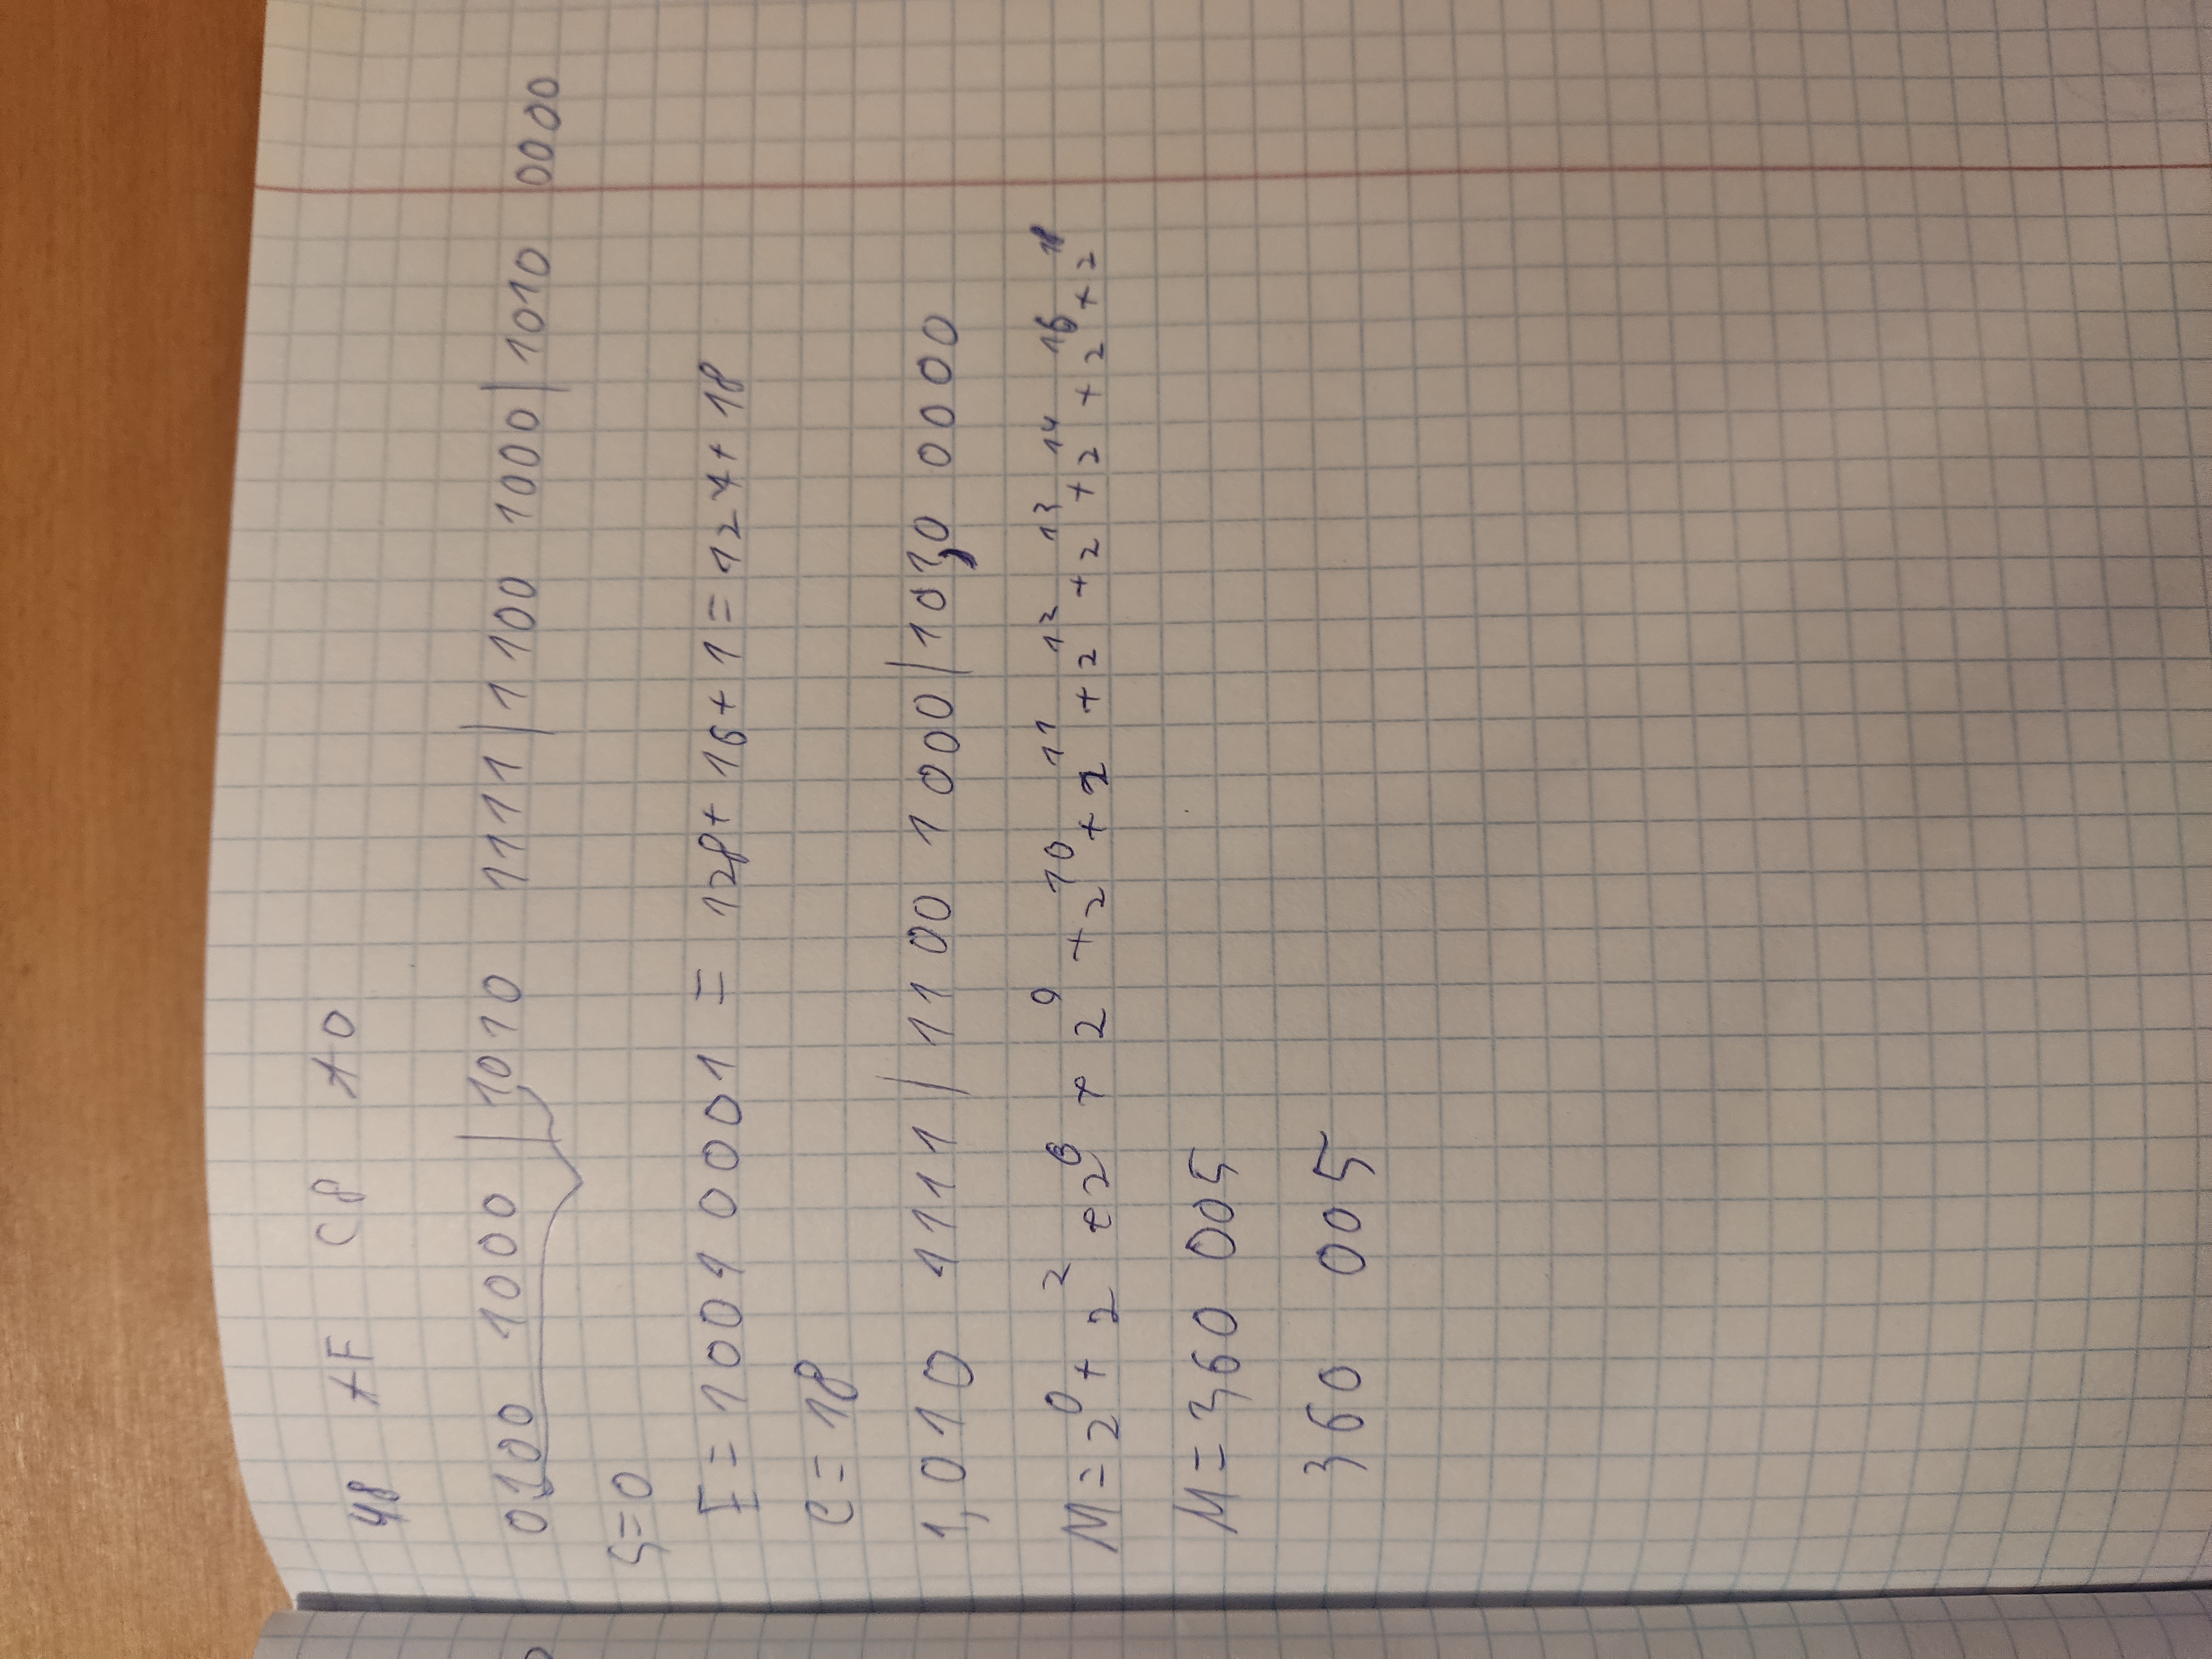 48 AF C8 A0
0100 1000 | 1010 1111 | 1100 1000 | 1010 0000
S=0
E = 1001 0001 = 128 + 16 + 1 = 127 + 18
e = 18
1,010 1111 | 1100 1000 | 101,0 0000
M = 2^0 + 2^2 + 2^6 + 2^9 + 2^10 + 2^11 + 2^12 + 2^13 + 2^14 + 2^16 + 2^18
M = 360 005
360 005